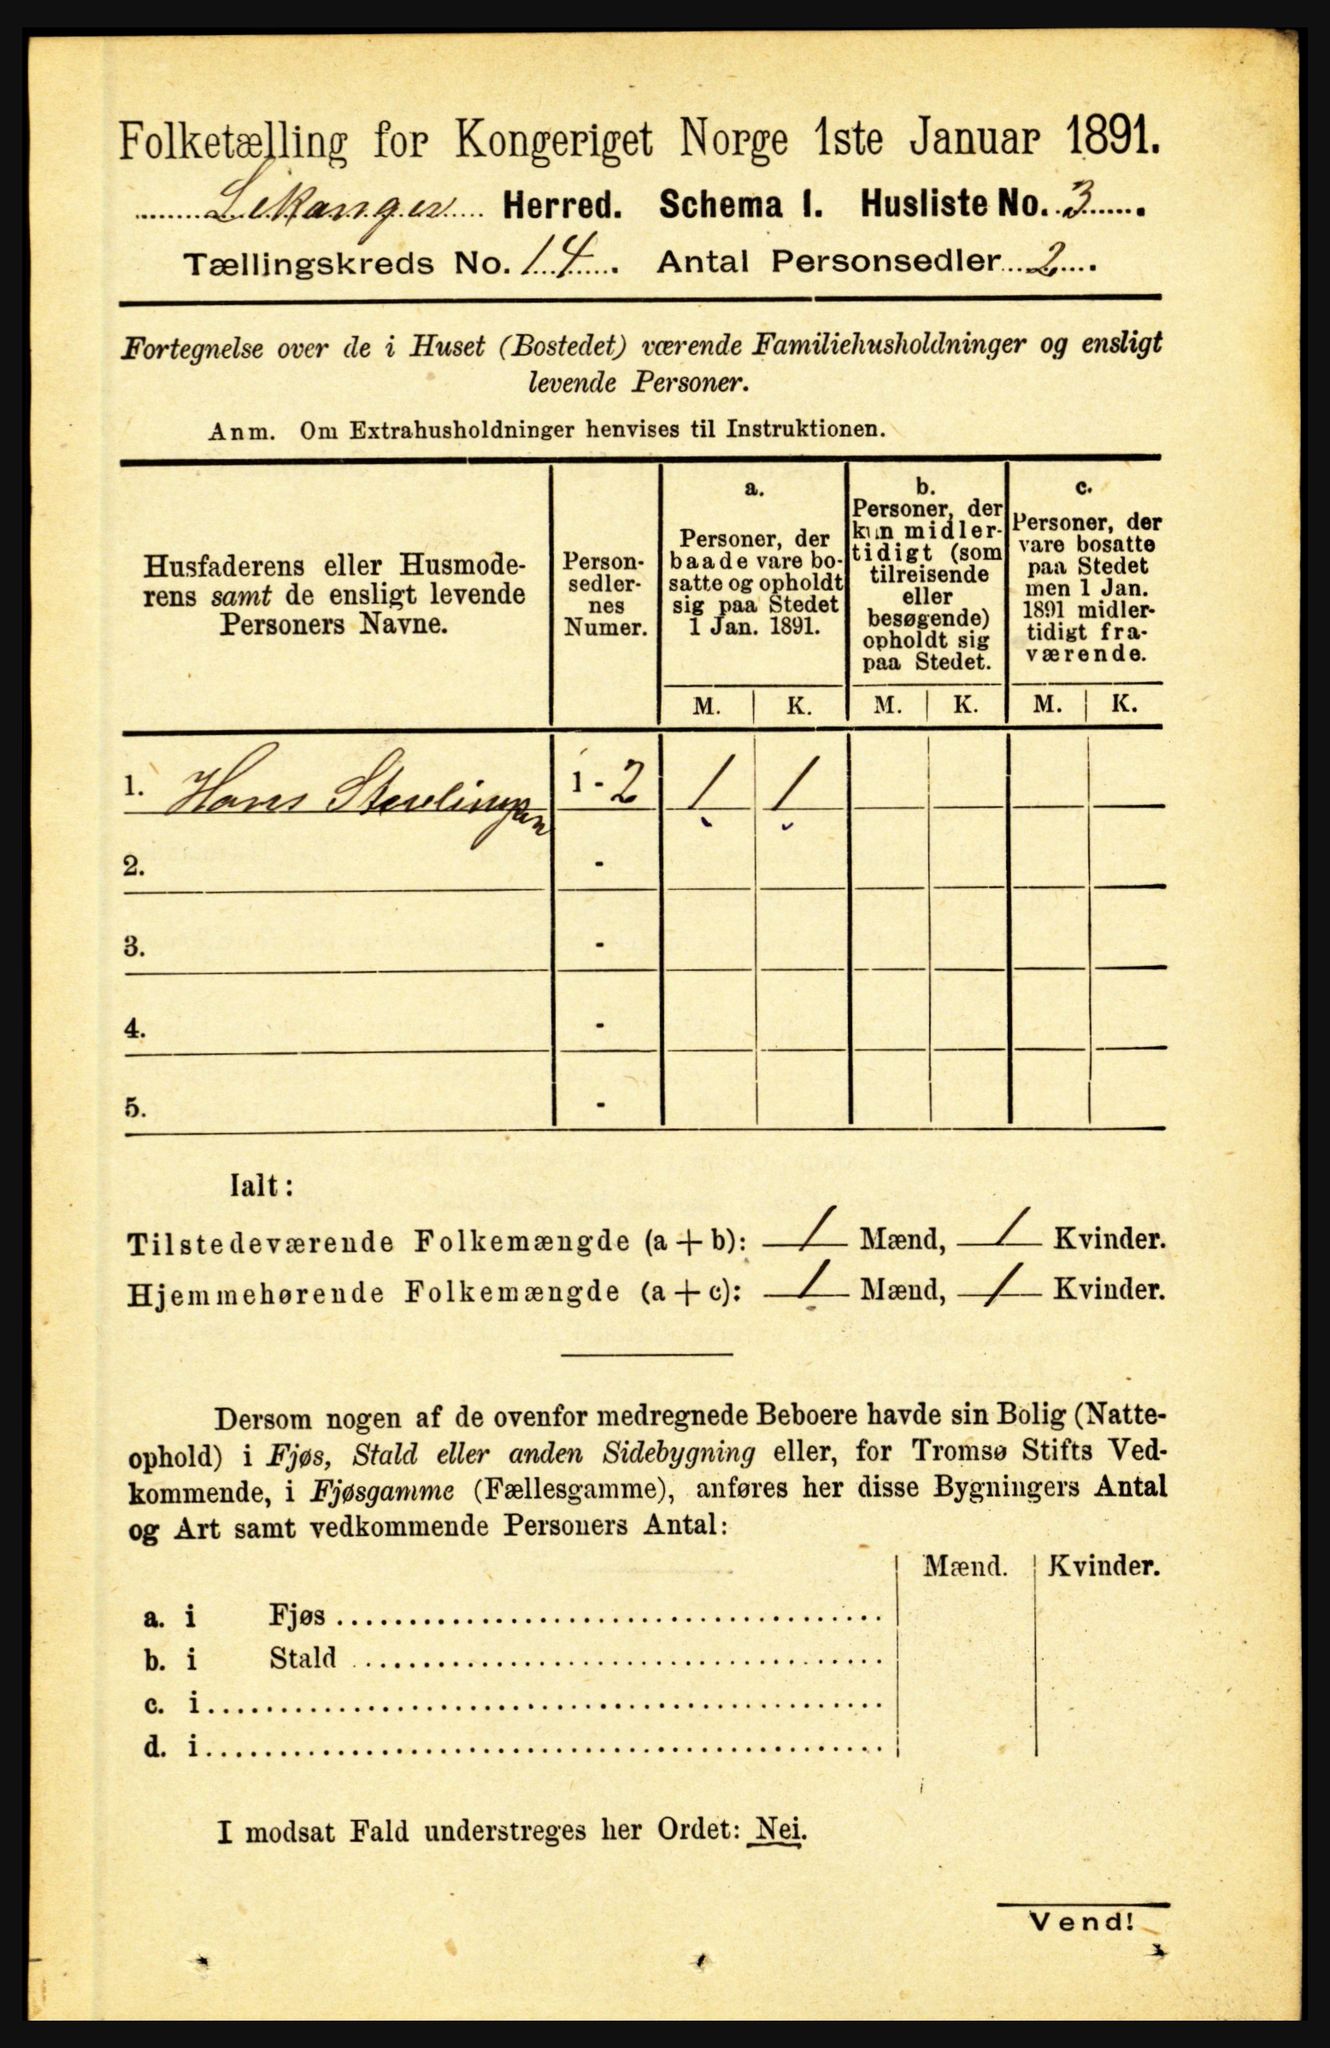 Folketælling for Kongeriget Norge 1ste Januar 1891.
Lekanger Herred. Schema I. Husliste No. 3.
Tællingskreds No. 14. Antal Personsedler 2.
Fortegnelse over de i Huset (Bostedet) værende Familiehusholdninger og ensligt
levende Personer.
Anm. Om Extrahusholdninger henvises til Instruktionen.
Husfaderens eller Husmode-
rens samt de ensligt levende
Personers Navne.
Person-
sedler-
nes
Numer.
a.
Personer, der
baade vare bo-
satte og opholdt
sig paa Stedet
1 Jan. 1891.
b.
Personer, der
kun midler-
tidigt (som
tilreisende
eller
besøgende)
opholdt sig
paa Stedet.
c.
Personer, der
vare bosatte
paa Stedet
men 1 Jan.
1891 midler-
tidigt fra-
værende.
M. K. M. K. M. K.
1. Hans 1 - 2 1 1
2. -
3. -
4. -
5. -
Ialt:
Tilstedeværende Folkemængde (a + b): 1 Mænd, 1 Kvinder.
Hjemmehørende Folkemængde (a + c): 1 Mænd, 1 Kvinder.
Dersom nogen af de ovenfor medregnede Beboere havde sin Bolig (Natte-
ophold) i Fjøs, Stald eller anden Sidebygning eller, for Tromsø Stifts Ved-
kommende, i Fjøsgamme (Fællesgamme), anføres her disse Bygningers Antal
og Art samt vedkommende Personers Antal:
Mænd. Kvinder.
a. i Fjøs
b. i Stald
c. i
d. i
I modsat Fald understreges her Ordet: Nei.
Vend!